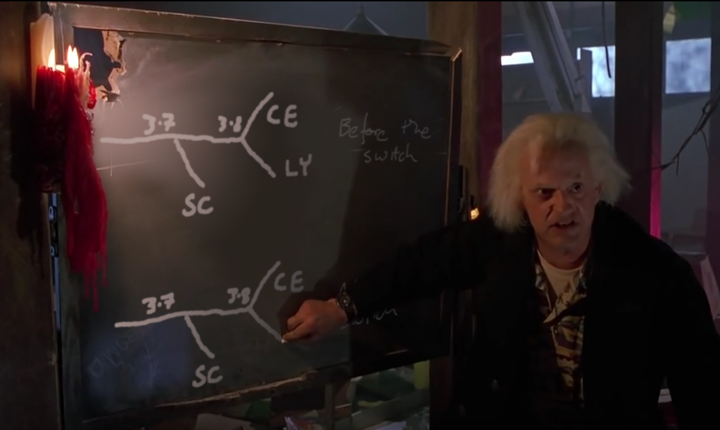 3.7 3.8 CE
LY
SC
Before the
switch
3.7 3.8 CE
SC